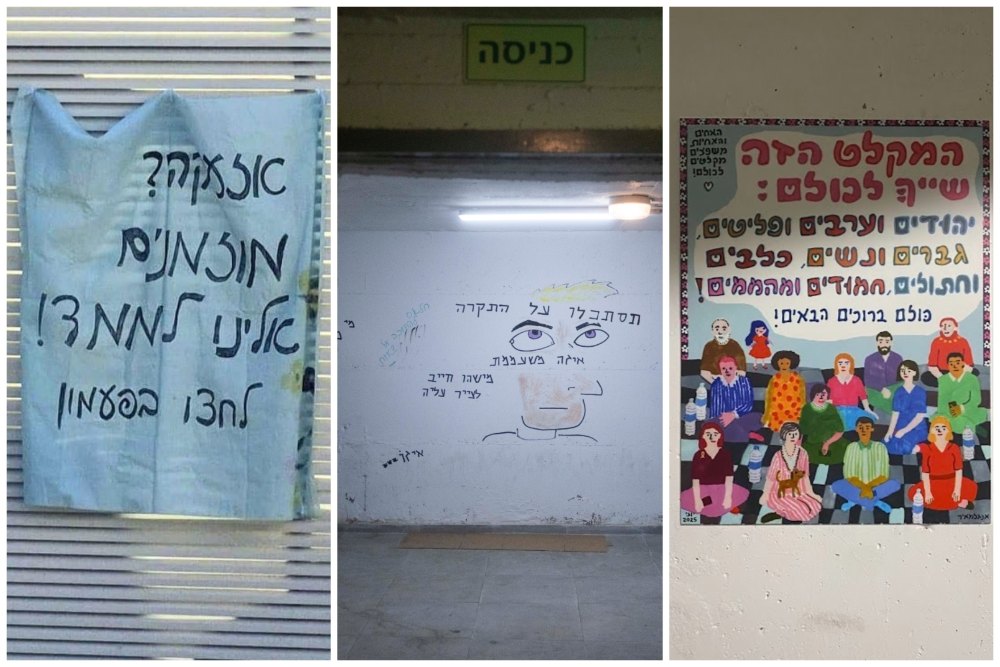 אזעקה?
מוזמנים
אלינו לממד!
לחצו בפעמון
כניסה
תסתכלו על התקרה
איגה משעממת
מישהו חייב
לצייר עליה
האחים
והאחיות
משפצים
מקלטים
לכולם!
המקלט הזה
שייך לכולם:
יהודים וערבים ופליטים,
גברים ונשים, כלבים
וחתולים, חמודים ומהממים!
כולם ברוכים הבאים!
2025